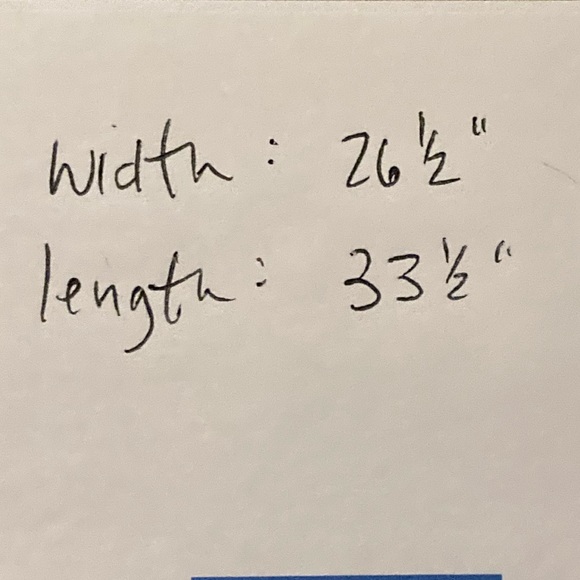 width: 26½"
length: 33½"